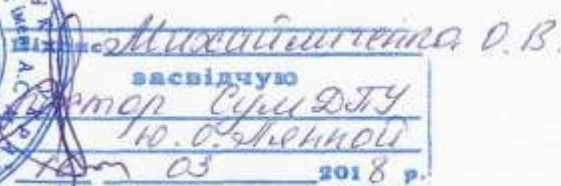 Підпис Михайличенка О.В.
засвідчую
ректор СумДПУ
Ю.О. Лянной
03 2018 р.
імені А.С